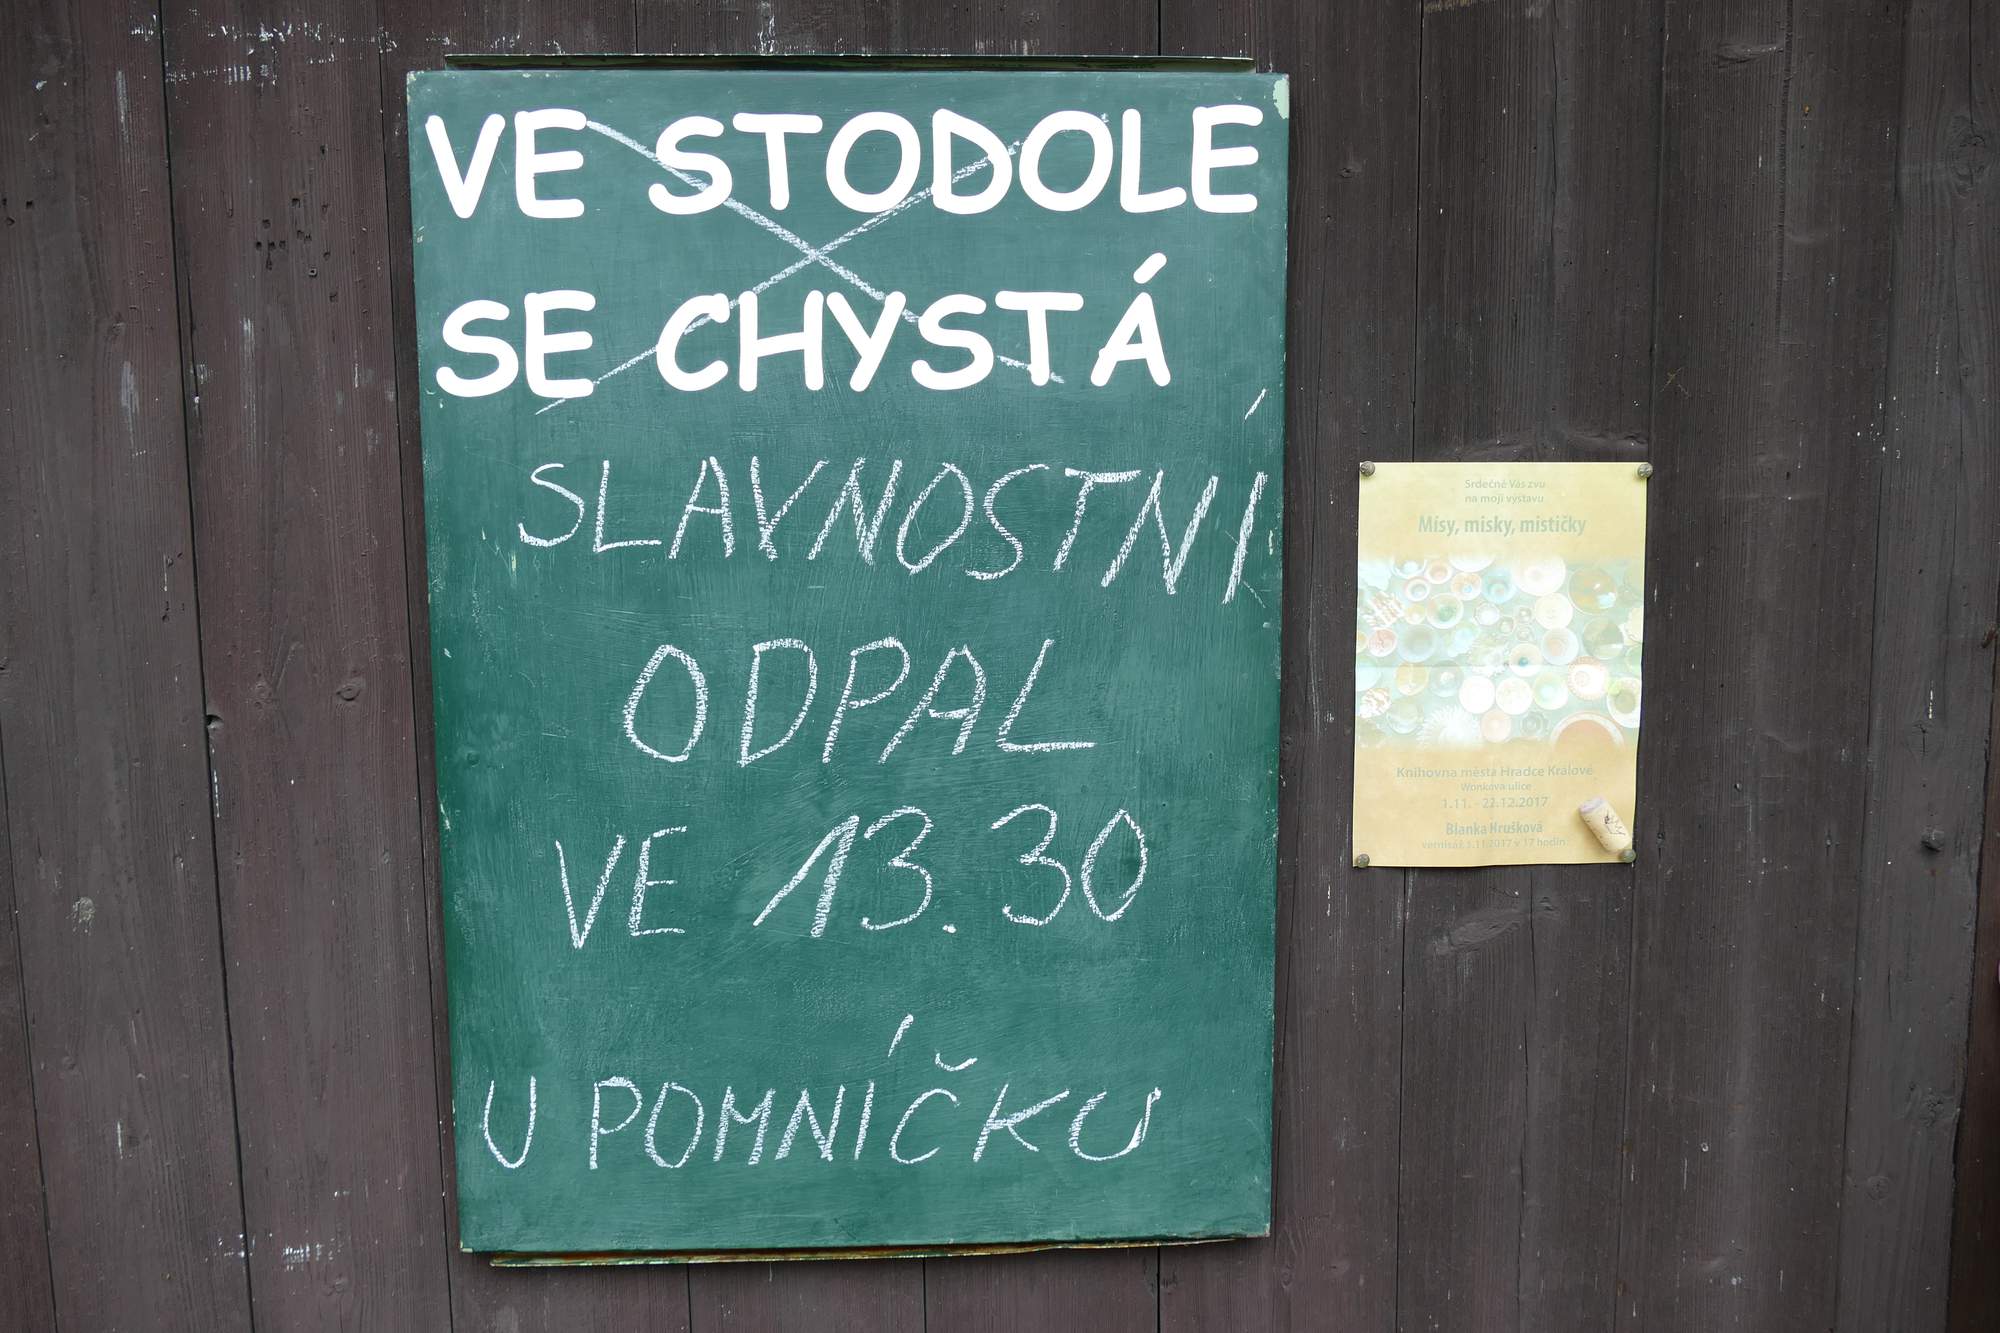 VE STODOLE
SE CHYSTÁ
SLAVNOSTNÍ
ODPAL
VE 13.30
U POMNÍČKU
Srdečně Vás zvu
na moji výstavu
Mísy, misky, mističky
Knihovna města Hradce Králové
Wonkova ulice
1.11. - 22.12.2017
Blanka Hrušková
vernisáž 1.11.2017 v 17 hodin